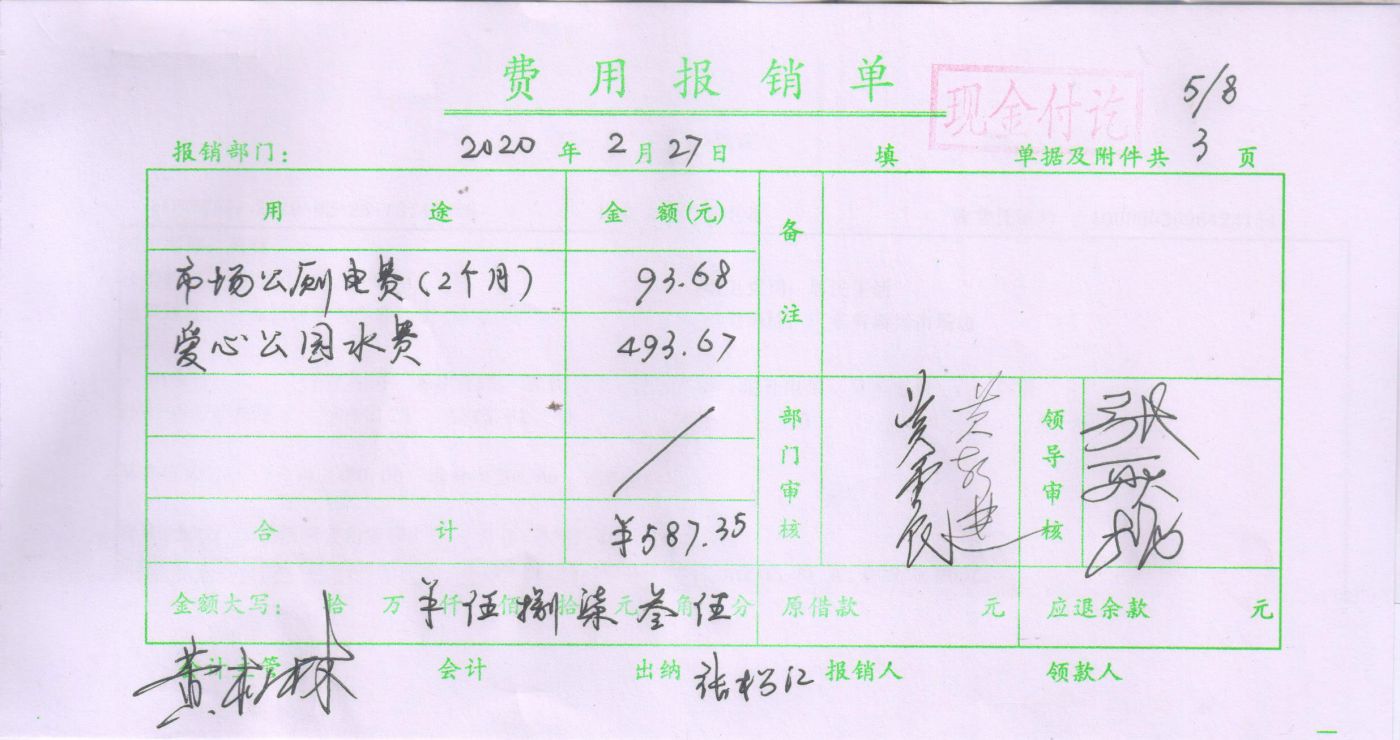 费用报销单
现金付讫
5/8
报销部门: 2020 年 2 月 27 日 填 单据及附件共 3 页
用途 金额(元) 备注
市场公厕电费(2个月) 93.68
爱心公园水费 493.67
部门审核 领导审核
合计 ¥587.35
金额大写: 拾 万 ¥ 仟 伍 佰 捌 拾 柒 元 叁 角 伍 分 原借款 元 应退余款 元
会计主管 会计 出纳 报销人 领款人